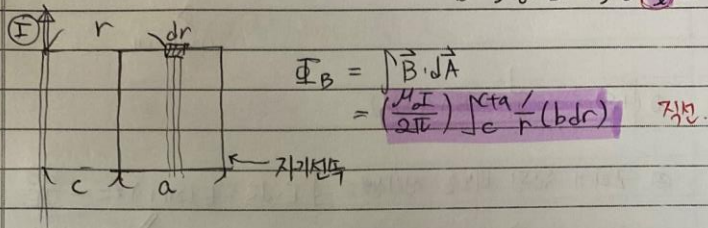 I r dr
Φ_B = ∫B⃗·dA⃗
= (μ₀I/2π) ∫_c^{c+a} 1/r (bdr) 직선.
← 자기선속
c a